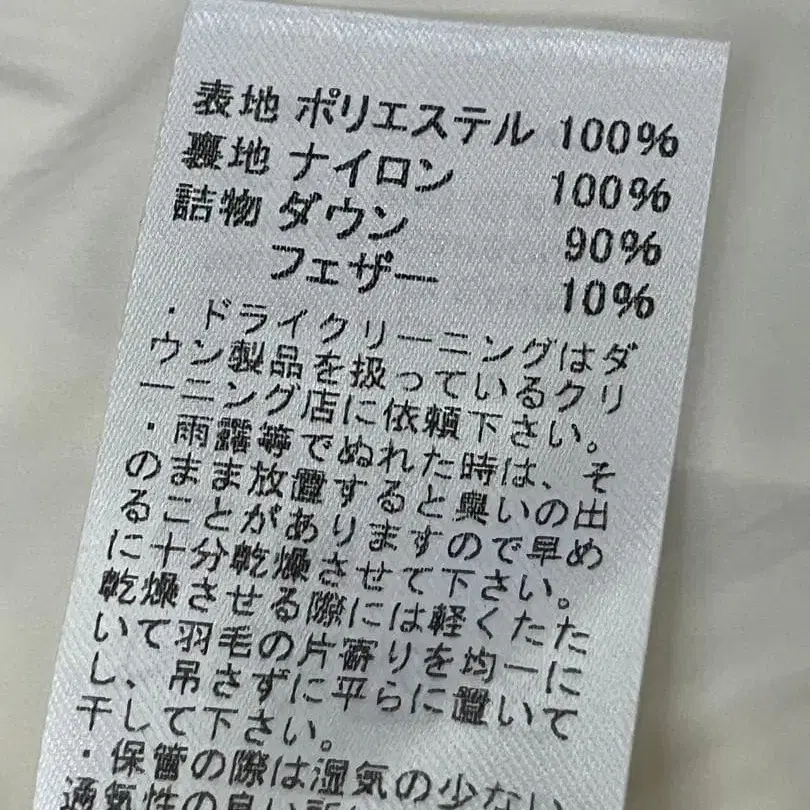 表地 ポリエステル 100%
裏地 ナイロン 100%
詰物 ダウン 90%
フェザー 10%
・ドライクリーニングはダ
ウン製品を扱っているクリ
ーニング店に依頼下さい。
・雨露等でぬれた時は、そ
のまま放置すると臭いの出
ることがありますので早め
に十分乾燥させて下さい。
乾燥させる際には軽くたた
いて羽毛の片寄りを均一に
し、吊さずに平らに置いて
干して下さい。
・保管の際は湿気の少ない
通気性の良い所に